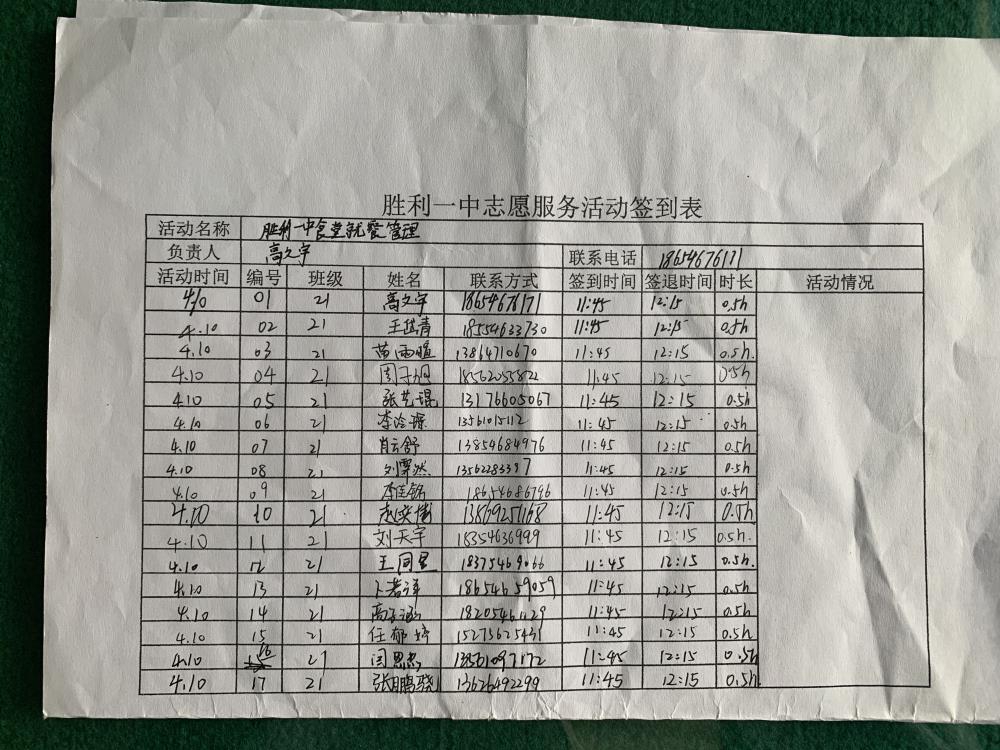 胜利一中志愿服务活动签到表
活动名称 胜利一中食堂就餐管理
负责人 高文宇 联系电话 18654676171
活动时间 编号 班级 姓名 联系方式 签到时间 签退时间 时长 活动情况
4.10 01 21 高文宇 18654676171 11:45 12:15 0.5h
4.10 02 21 18554633730 11:45 12:15 0.5h
4.10 03 21 苗雨暄 13864710670 11:45 12:15 0.5h.
4.10 04 21 周子旭 18562055822 11:45 12:15 0.5h
4.10 05 21 张艺琨 13176605067 11:45 12:15 0.5h
4.10 06 21 13561015112 11:45 12:15 0.5h
4.10 07 21 肖云舒 13854684976 11:45 12:15 0.5h
4.10 08 21 13562283397 11:45 12:15 0.5h
4.10 09 21 李佳铭 18654686796 11:45 12:15 0.5h
4.10 10 21 13869251168 11:45 12:15 0.5h
4.10 11 21 刘天宇 18354636999 11:45 12:15 0.5h.
4.10 12 21 王同星 18375469066 11:45 12:15 0.5h.
4.10 13 21 18654659059 11:45 12:15 0.5h
4.10 14 21 高子涵 18205461129 11:45 12:15 0.5h
4.10 15 21 任郁婷 15273625431 11:45 12:15 0.5h
4.10 16 21 闫思杰 13561097172 11:45 12:15 0.5h
4.10 17 21 张鹏骁 13626492299 11:45 12:15 0.5h